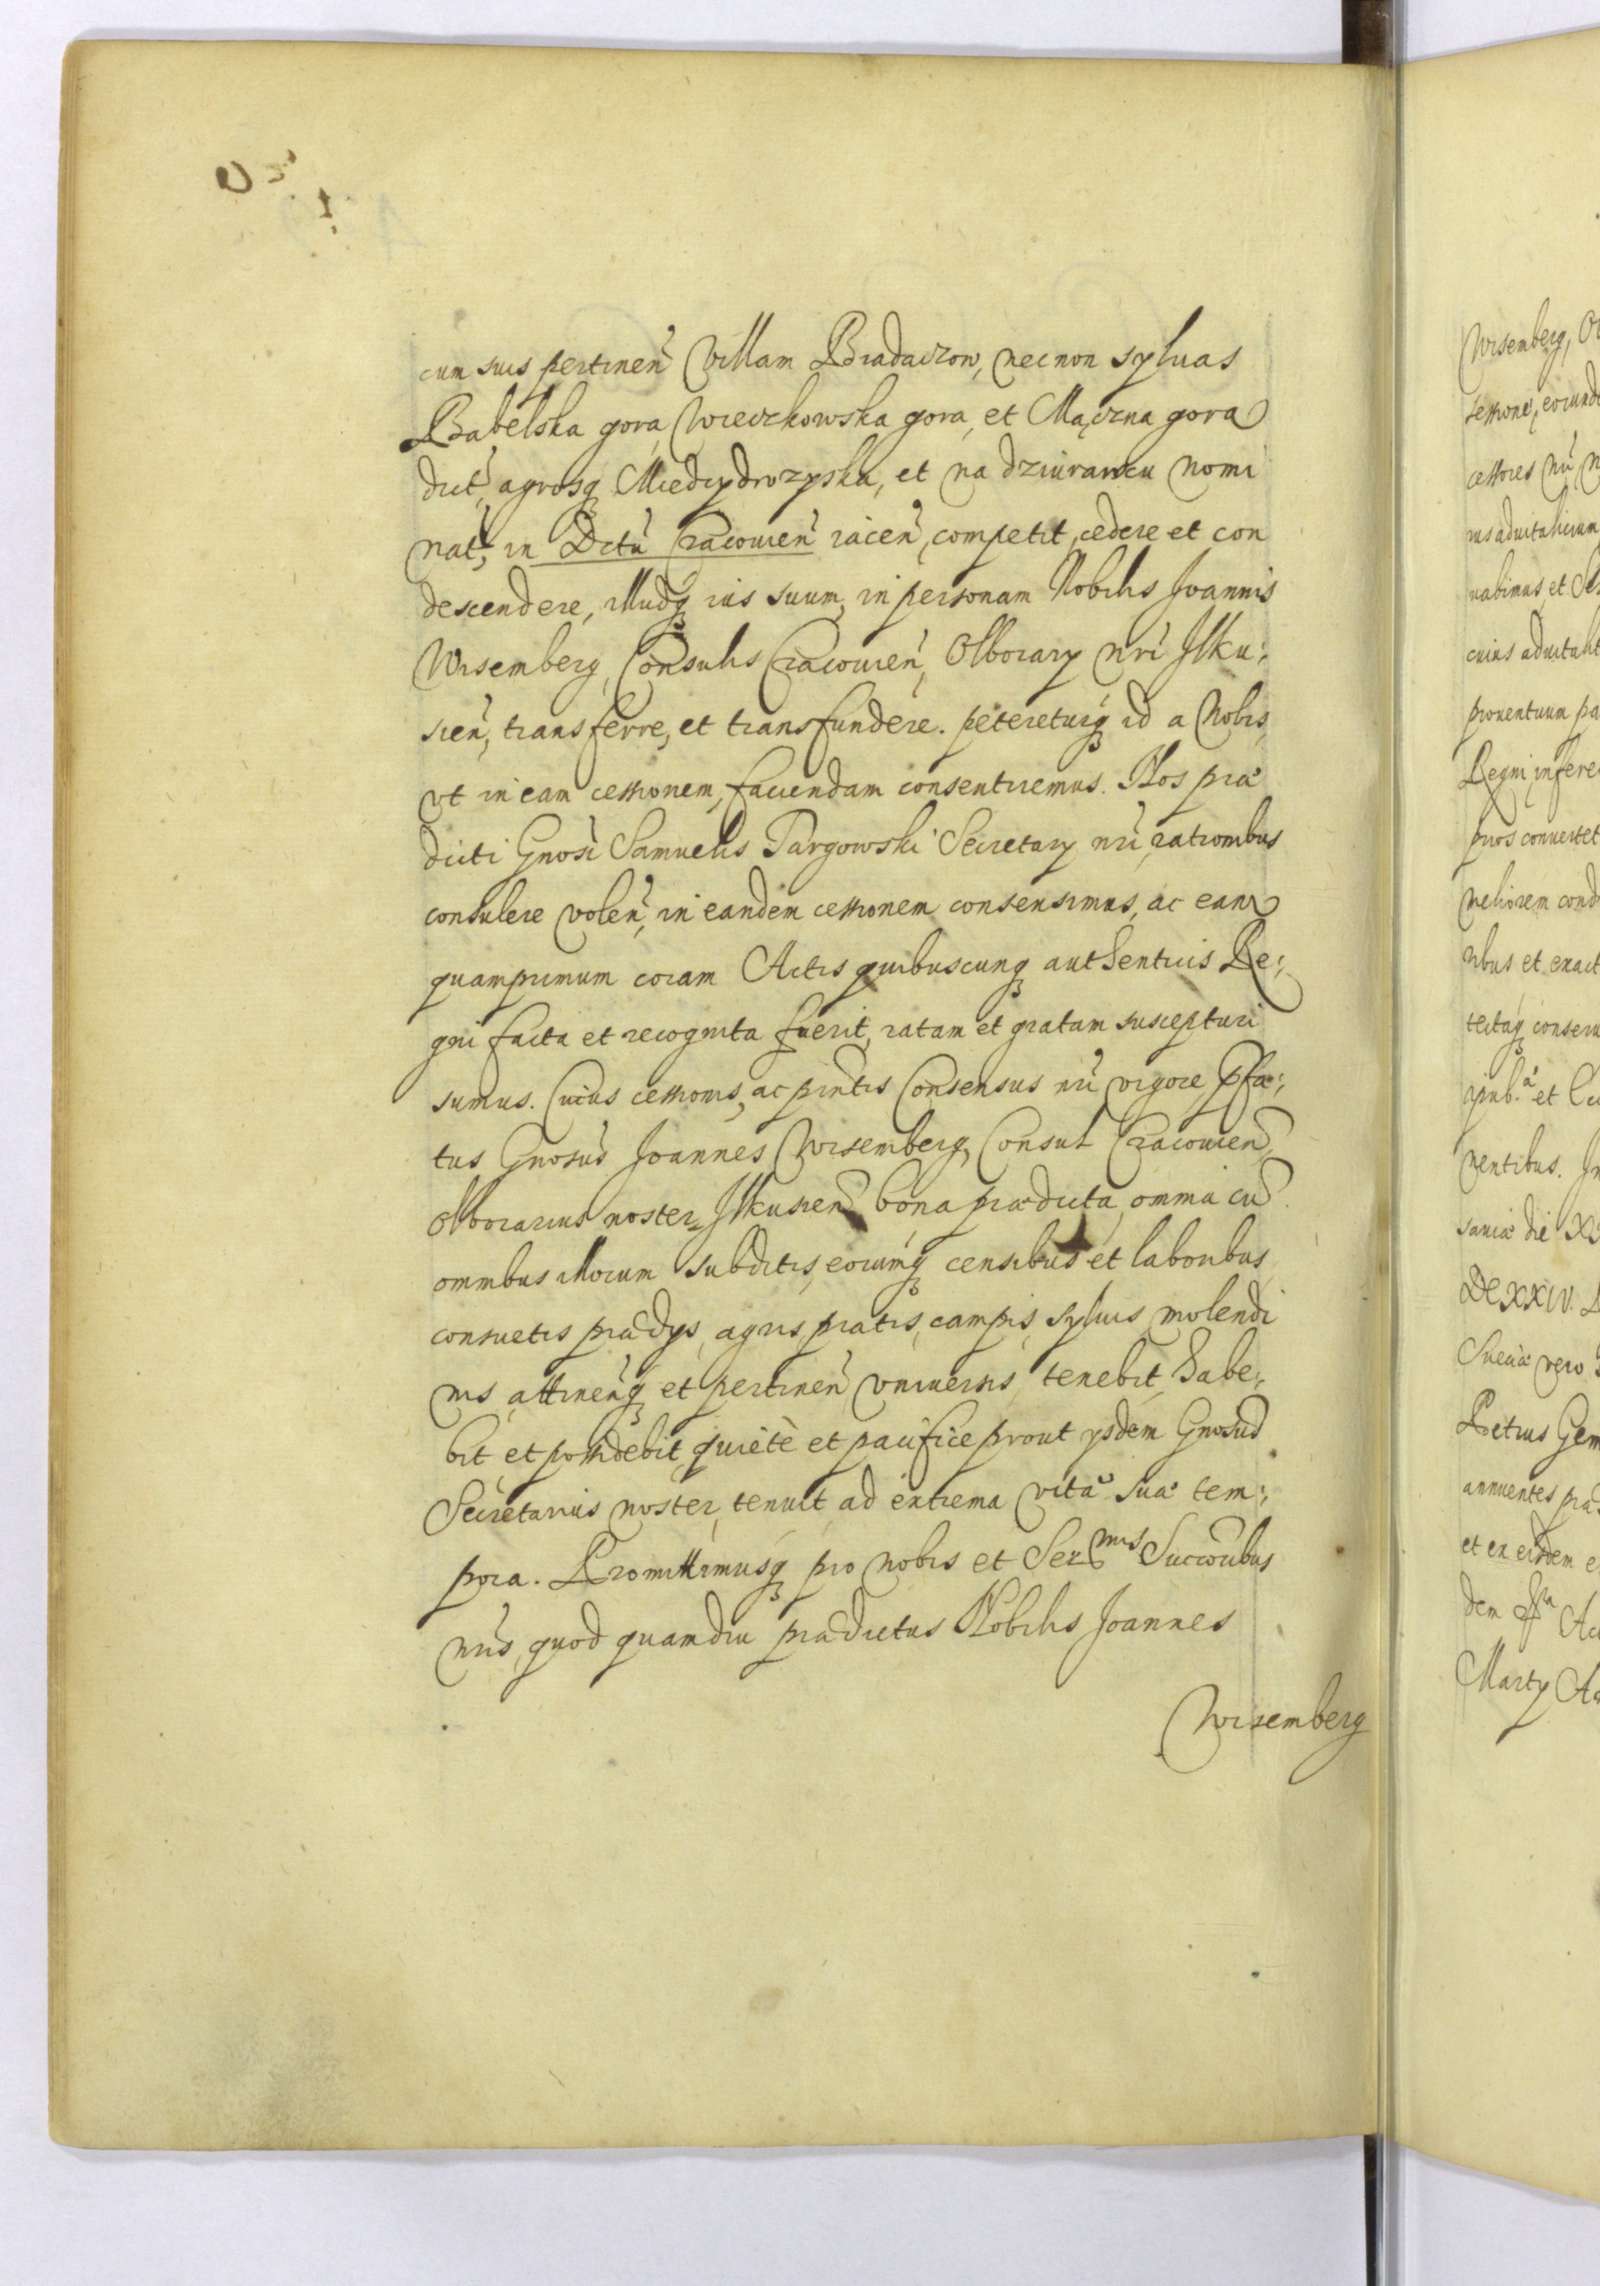 cum suis pertineñ Villam Bradaczow, necnon syluas
Babelska gora, Wieczkowska gora, et Mączna gora
dict, agrosq Miedzydrozyska, et na dziurawcu nomi
nat, in Dctũ Cracouieñ iaceñ, competit, cedere et con
descendere, illudq ius suum, in personam Nobilis Joannis
Wisemberg, Consulis Cracouieñ, Olborary nri Jlku:
sieñ, transferre, et transfundere. petereturq id a Nobis,
vt in eam cessionem, faciendam consentiremus. Nos præ
dicti Gnosi Samuelis Targowski Secretary nri, rationibus
consulere voleñ, in eandem cessionem consensimus, ac eam
quamprimum coram Actis quibuscunq authenticis Re:
gni facta et recognita fuerit, ratam et gratam suscepturi
sumus. Cuius cessionis, ac pñtis Consensus nri vigore, pfa:
tus Gnosus Joannes Wisemberg, Consul Cracouieñ,
Olborarius noster Jlkusieñ bona prædicta, omnia cũ
omnibus illorum subditis, eorumq censibus et laboribus,
consuetis prædys, agris, pratis, campis, syluis, molendi
nis, attineñq et pertineñ vniuersis, tenebit, habe:
bit, et possidebit, quietè et pacifice prout ysdem Gnosus
Secretarius noster, tenuit, ad extrema vitæ suæ tem:
pora. Promittimusq pro nobis et Ser:mis Succoribus
nris, quod quamdiu prædictus Nobilis Joannes
Wisemberg
Wisemberg,
cuius
Regni infere
ribus et exact
nentibus.
Sueciæ vero
Petrus Gem
annuentes
Marty